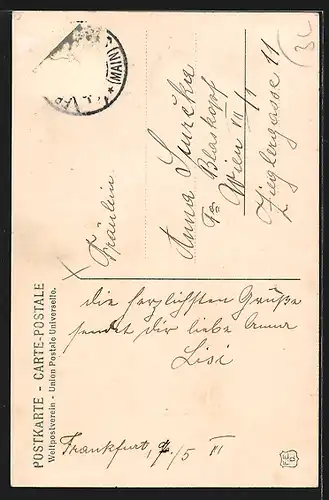 POSTKARTE - CARTE-POSTALE
Weltpostverein - Union Postale Universelle.
(MAIN)
Fräulein
Anna
Fa Blaskopf
Wien VII/1
Zieglergasse 11
32
die herzlichsten Grüße
sendet dir liebe Anna
Lisi
Frankfurt, 9./5 11